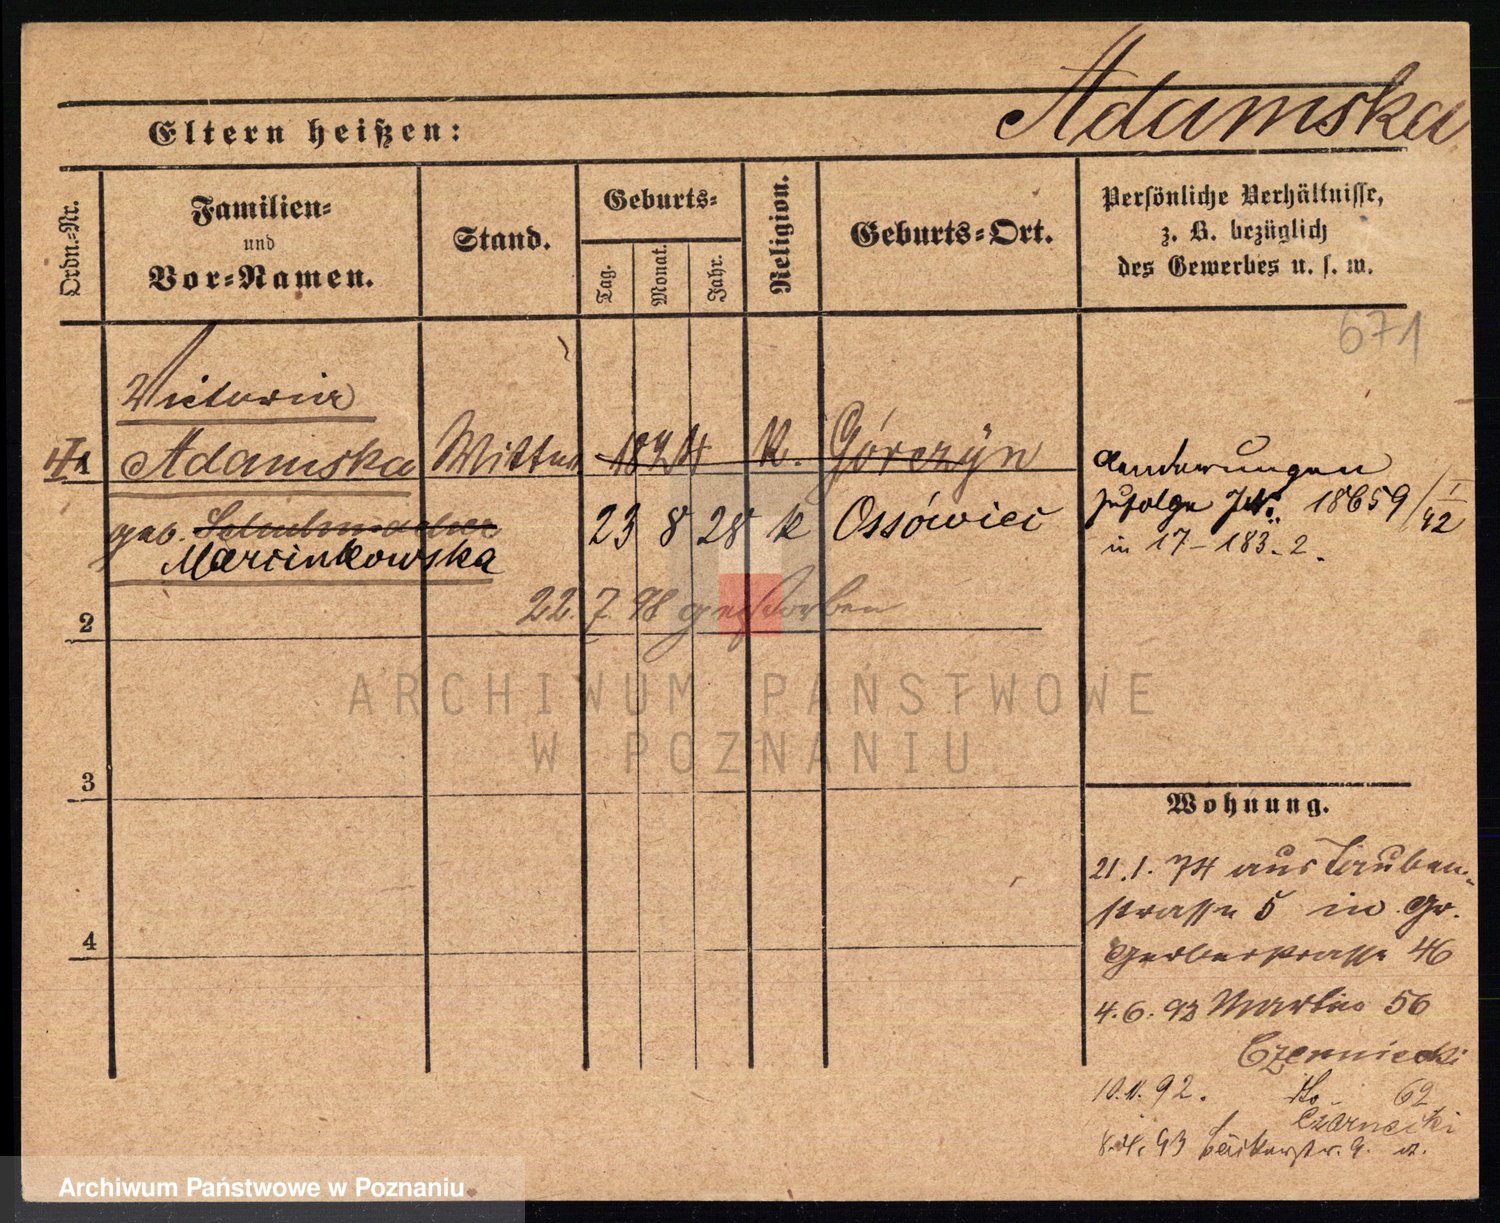 Adamska
Eltern heißen:
Ordn.-Nr.
Familien-
und
Vor-Namen.
Stand.
Geburts-
Tag.
Monat.
Jahr.
Religion.
Geburts-Ort.
Persönliche Verhältnisse,
z. B. bezüglich
des Gewerbes u. s. w.
671
Victoria
1 Adamska Wittwe 1824 k. Górczyn
geb.
Marcinkowska
23 8 28 k Ossówiec
Aenderungen
zufolge 18659/1
92
in 17-183.2.
22.7.98 gestorben
2
3
4
ARCHIWUM PAŃSTWOWE
W POZNANIU
Wohnung.
21.1.74 aus Tauben-
strasse 5 in Gr.
Gerberstrasse 46
4.6.92 Martin 56
Czerniecki
10.11.92. do 62
Czarnecki
93 Bäckerstr. 9.
Archiwum Państwowe w Poznaniu